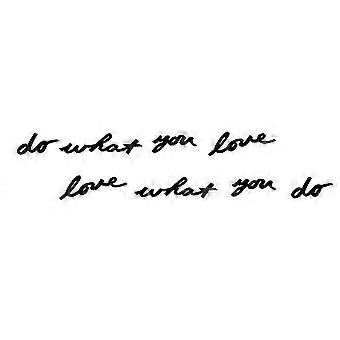 do what you love
love what you do